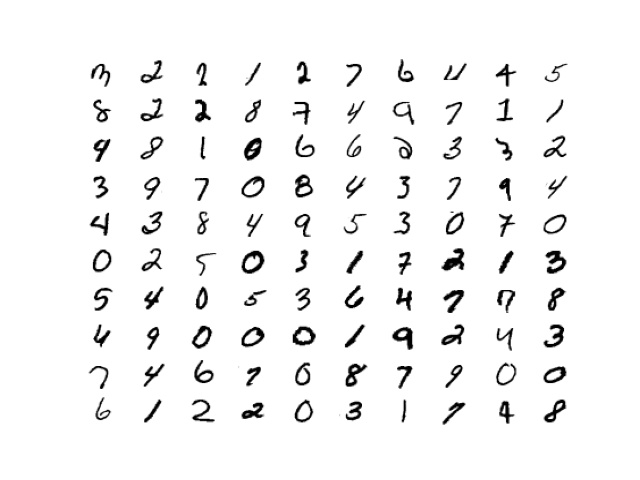 3 2 2 1 2 7 6 4 4 5
8 2 2 8 7 4 9 7 1 1
9 8 1 0 6 6 2 3 3 2
3 9 7 0 8 4 3 7 9 4
4 3 8 4 9 5 3 0 7 0
0 2 5 0 3 1 7 2 1 3
5 4 0 5 3 6 4 7 7 8
4 9 0 0 0 1 9 2 4 3
7 4 6 7 0 8 7 9 0 0
6 1 2 2 0 3 1 7 4 8